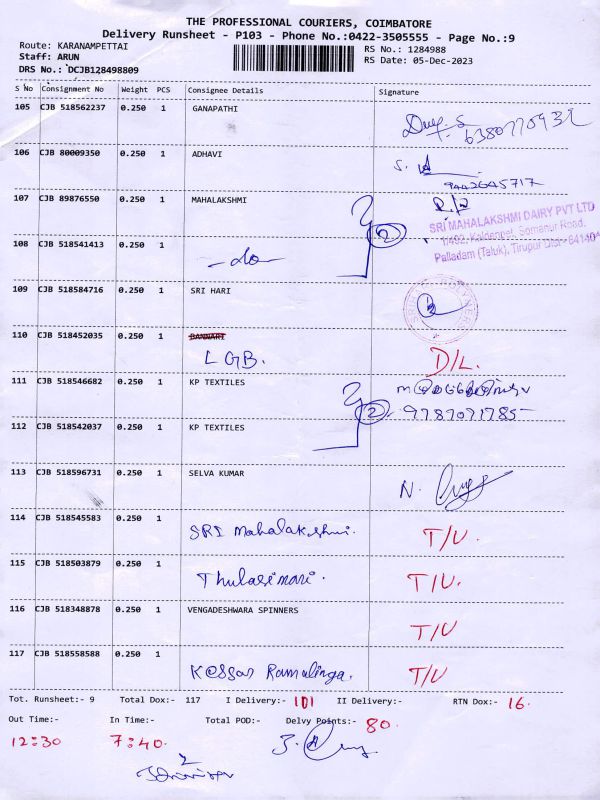 THE PROFESSIONAL COURIERS, COIMBATORE
Delivery Runsheet - P103 - Phone No.:0422-3505555 - Page No.:9
Route: KARANAMPETTAI RS No.: 1284988
Staff: ARUN RS Date: 05-Dec-2023
DRS No.: DCJB128498809
S No Consignment No Weight PCS Consignee Details Signature
105 CJB 518562237 0.250 1 GANAPATHI
106 CJB 80009350 0.250 1 ADHAVI S.
9442645717
107 CJB 89876550 0.250 1 MAHALAKSHMI
2
SRI MAHALAKSHMI DAIRY PVT LTD
Somanur Road,
Palladam (Taluk), Tirupur Dist - 641404
108 CJB 518541413 0.250 1 -do-
109 CJB 518584716 0.250 1 SRI HARI
110 CJB 518452035 0.250 1 BANNARI
LGB. D/L.
111 CJB 518546682 0.250 1 KP TEXTILES
2 9787091785
112 CJB 518542037 0.250 1 KP TEXTILES
113 CJB 518596731 0.250 1 SELVA KUMAR N.
114 CJB 518545583 0.250 1
SRI Mahalakshmi. T/U.
115 CJB 518503879 0.250 1
Thulasimani. T/U.
116 CJB 518348878 0.250 1 VENGADESHWARA SPINNERS
T/U
117 CJB 518558588 0.250 1
Ramalinga. T/U
Tot. Runsheet:- 9 Total Dox:- 117 I Delivery:- 101 II Delivery:- RTN Dox:- 16.
Out Time:- In Time:- Total POD:- Delvy Points:- 80.
12:30 7:40.